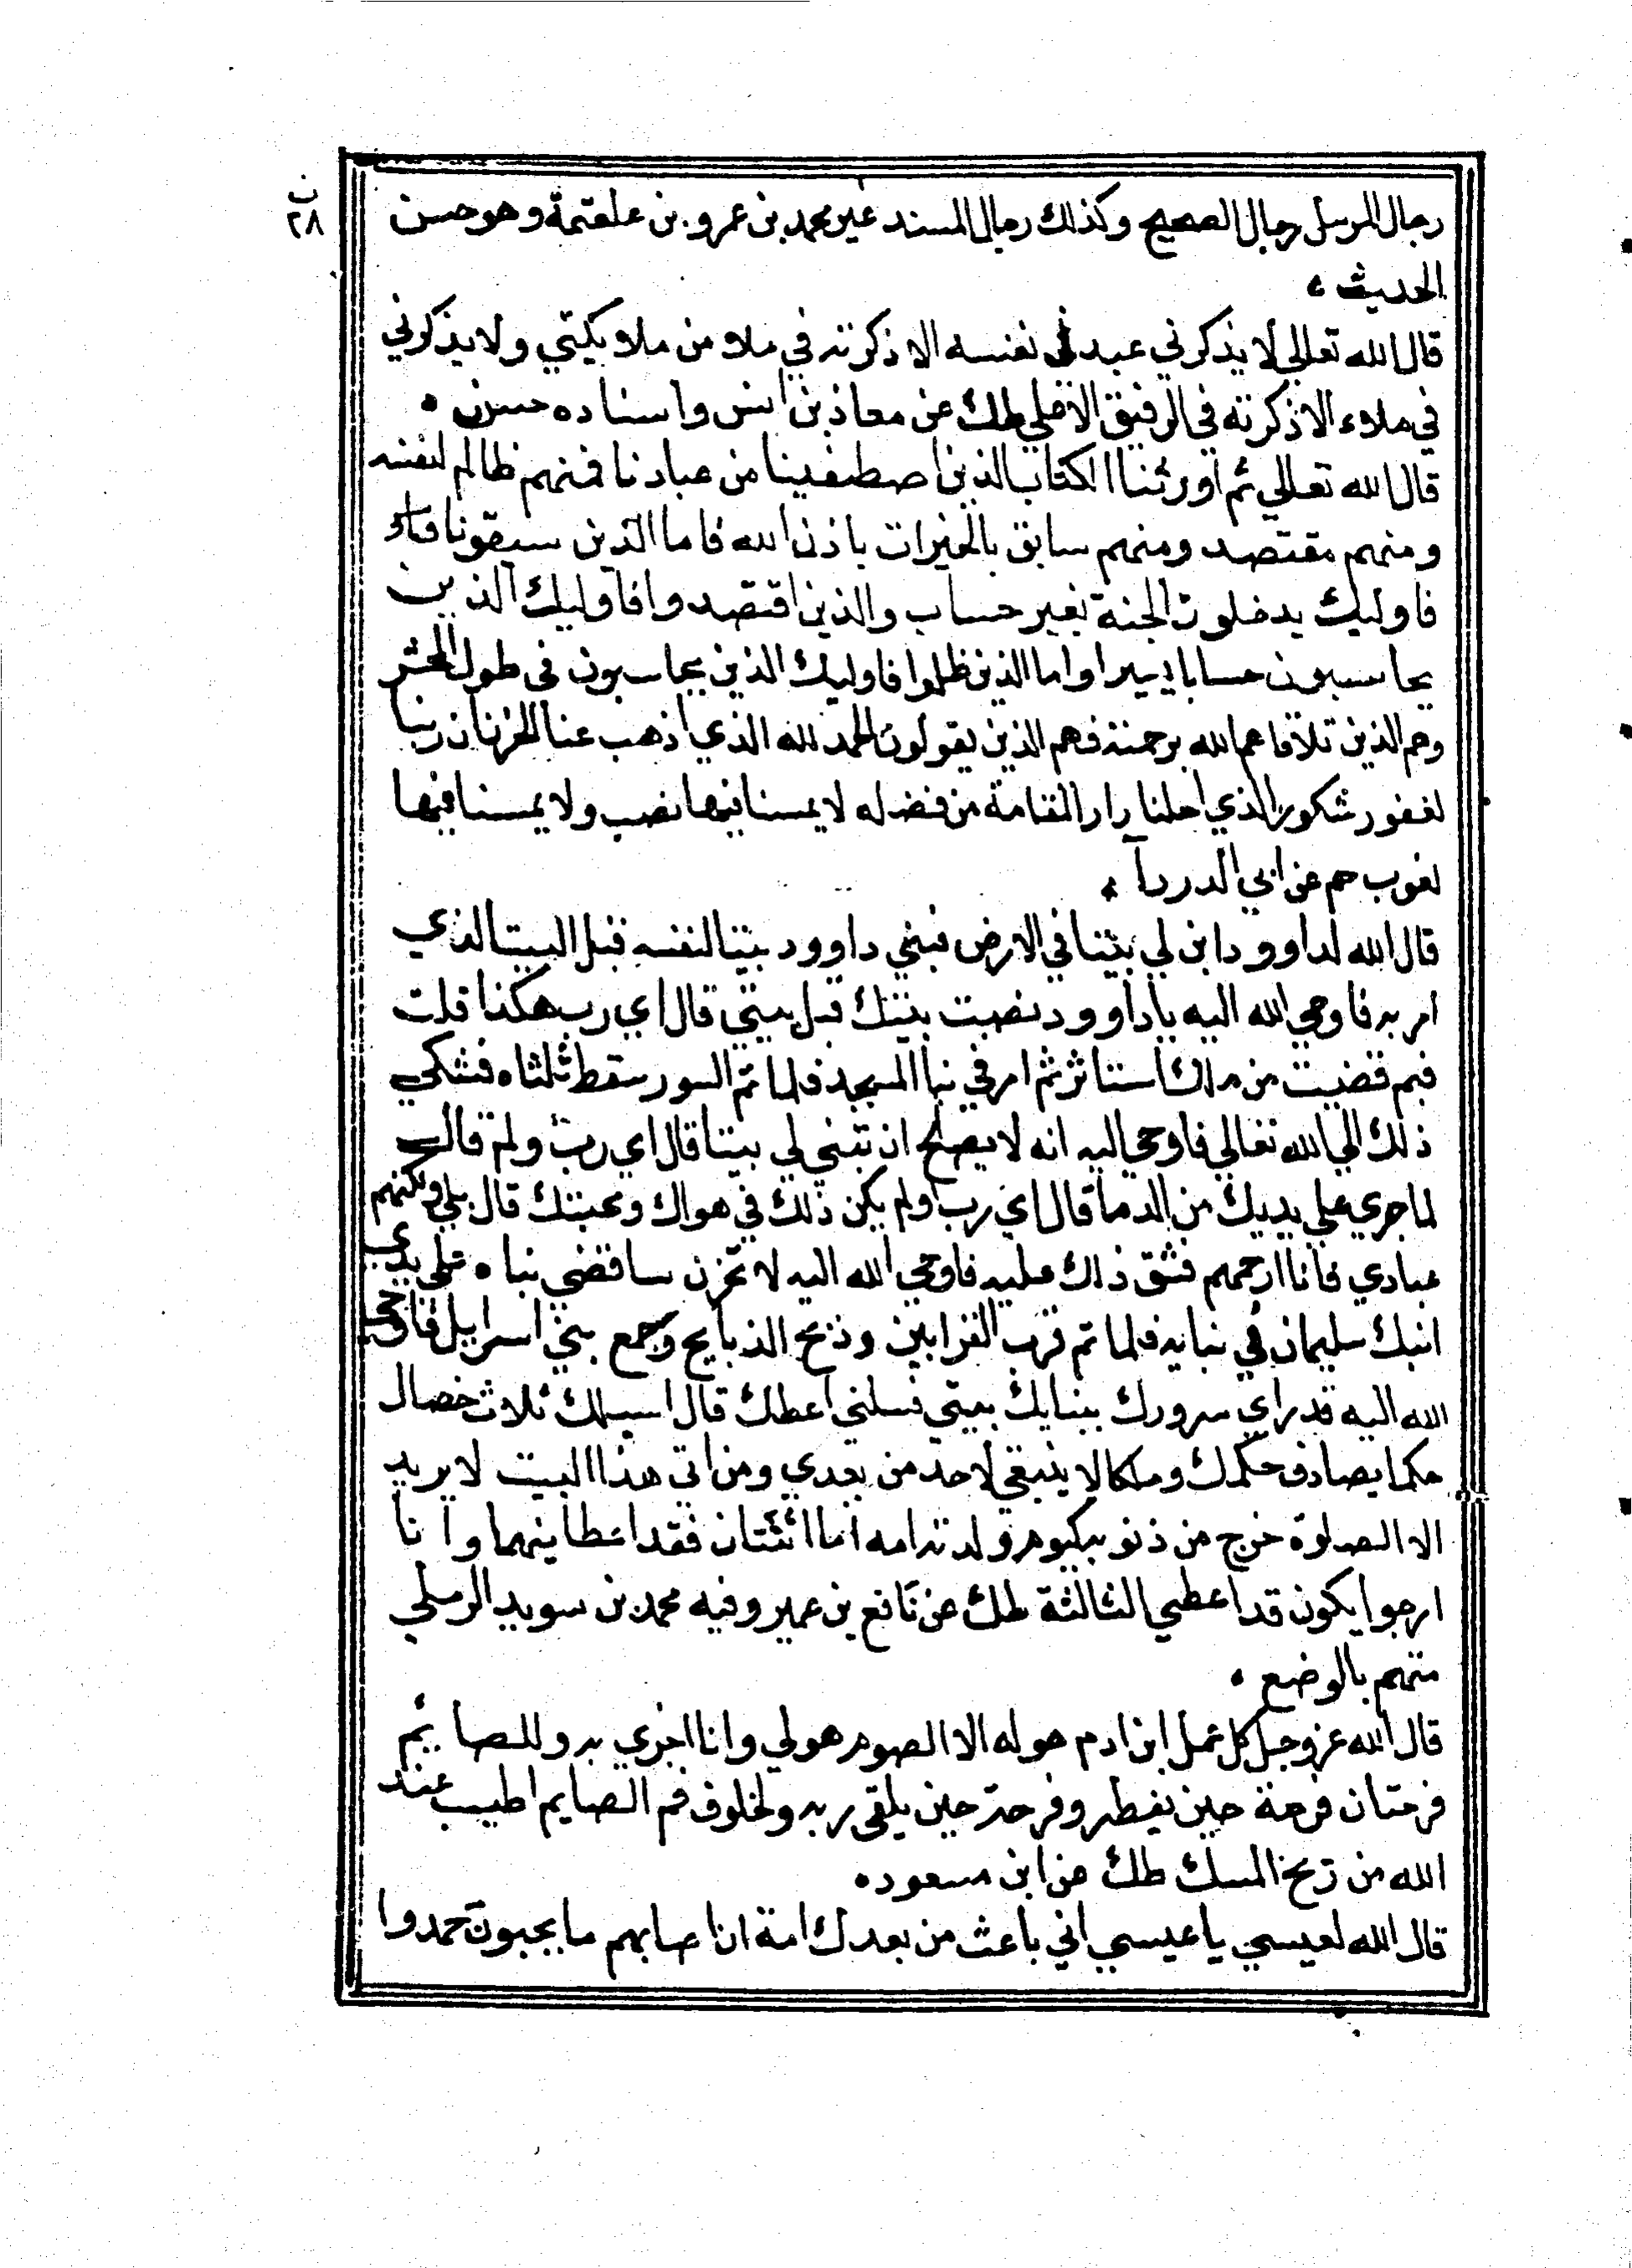 ن
٢٨
رجال المرسل رجال الصحيح وكذلك رجال المسند غير محمد بن عمرو بن علقتمة وهو حسن
الحديث ،
قال الله تعالى لا يذكرني عبد في نفسه الا ذكرته في ملاء من ملايكتي ولا يذكرني
في ملاء الا ذكرته في الرفيق الاعلي طك عن معاذ بن انس واسناده حسن .
قال الله تعالي ثم اورثنا الكتاب الذين اصطفينا من عبادنا فمنهم ظالم لنفسه
ومنهم مقتصد ومنهم سابق بالخيرات باذن الله فاما الذين سبقونا
فاوليك يدخلون الجنة بغير حساب والذين اقتصدوا فاوليك الذين
يحاسبون حسابا يسيرا واما الذين ظلموا فاوليك الذين يحاسبون في طول المحشر
وهم الذين تلافاهم الله برحمته فهم الذين يقولون الحمد لله الذي اذهب عنا الحزن ان ربنا
لغفور شكور الذي احلنا دار المقامة من فضله لا يمسنا فيها نصب ولا يمسنا فيها
لغوب حم عن ابي الدردآ ،
قال الله لداوود ابن لي بيتا في الارض فبني داوود بيتا لنفسه قبل البيت الذي
امر به فاوحي الله اليه ياداوود نصبت بيتك قبل بيتي قال اي رب هكذا قلت
فيم قضيت من ملك استاثر ثم امر في بنا المسجد فلما تم السور سقط ثلثاه فشكي
ذلك الي الله تعالي فاوحي اليه انه لا يصلح ان تبني لي بيتا قال اي رب ولم قال
لما جري علي يديك من الدما قال اي رب اولم يكن ذلك في هواك ومحبتك قال بلي ولكنهم
عبادي فانا ارحمهم فشق ذلك عليه فاوحي الله اليه لا تحزن ساقضي بناه علي يدي
ابنك سليمان في بنايه فلما تم قرب القرابين وذبح الذبايح وجمع بني اسرايل فاوحي
الله اليه قد راي سرورك ببنايك بيتي فسلني اعطك قال اسيلك ثلاث خصال
حكما يصادف حكمك وملكا لا ينبغي لاحد من بعدي ومن اتي هذا البيت لا يريد
الا الصلوة خرج من ذنوبه كيوم ولدته امه اما اثنتان فقد اعطاينهما وانا
ارجوا يكون قد اعطي الثالثة طك عن نافع بن عمير وفيه محمد بن سويد الرملي
متهم بالوضع .
قال الله عز وجل كل عمل ابن ادم هو له الا الصوم هو لي وانا اجزي به وللصايم
فرحتان فرحة حين يفطر وفرحة حين يلقي ربه ولخلوف فم الصايم اطيب عند
الله من ريح المسك طك عن ابن مسعود .
قال الله لعيسي يا عيسي اني باعث من بعدك امة ان اصابهم ما يحبون حمدوا